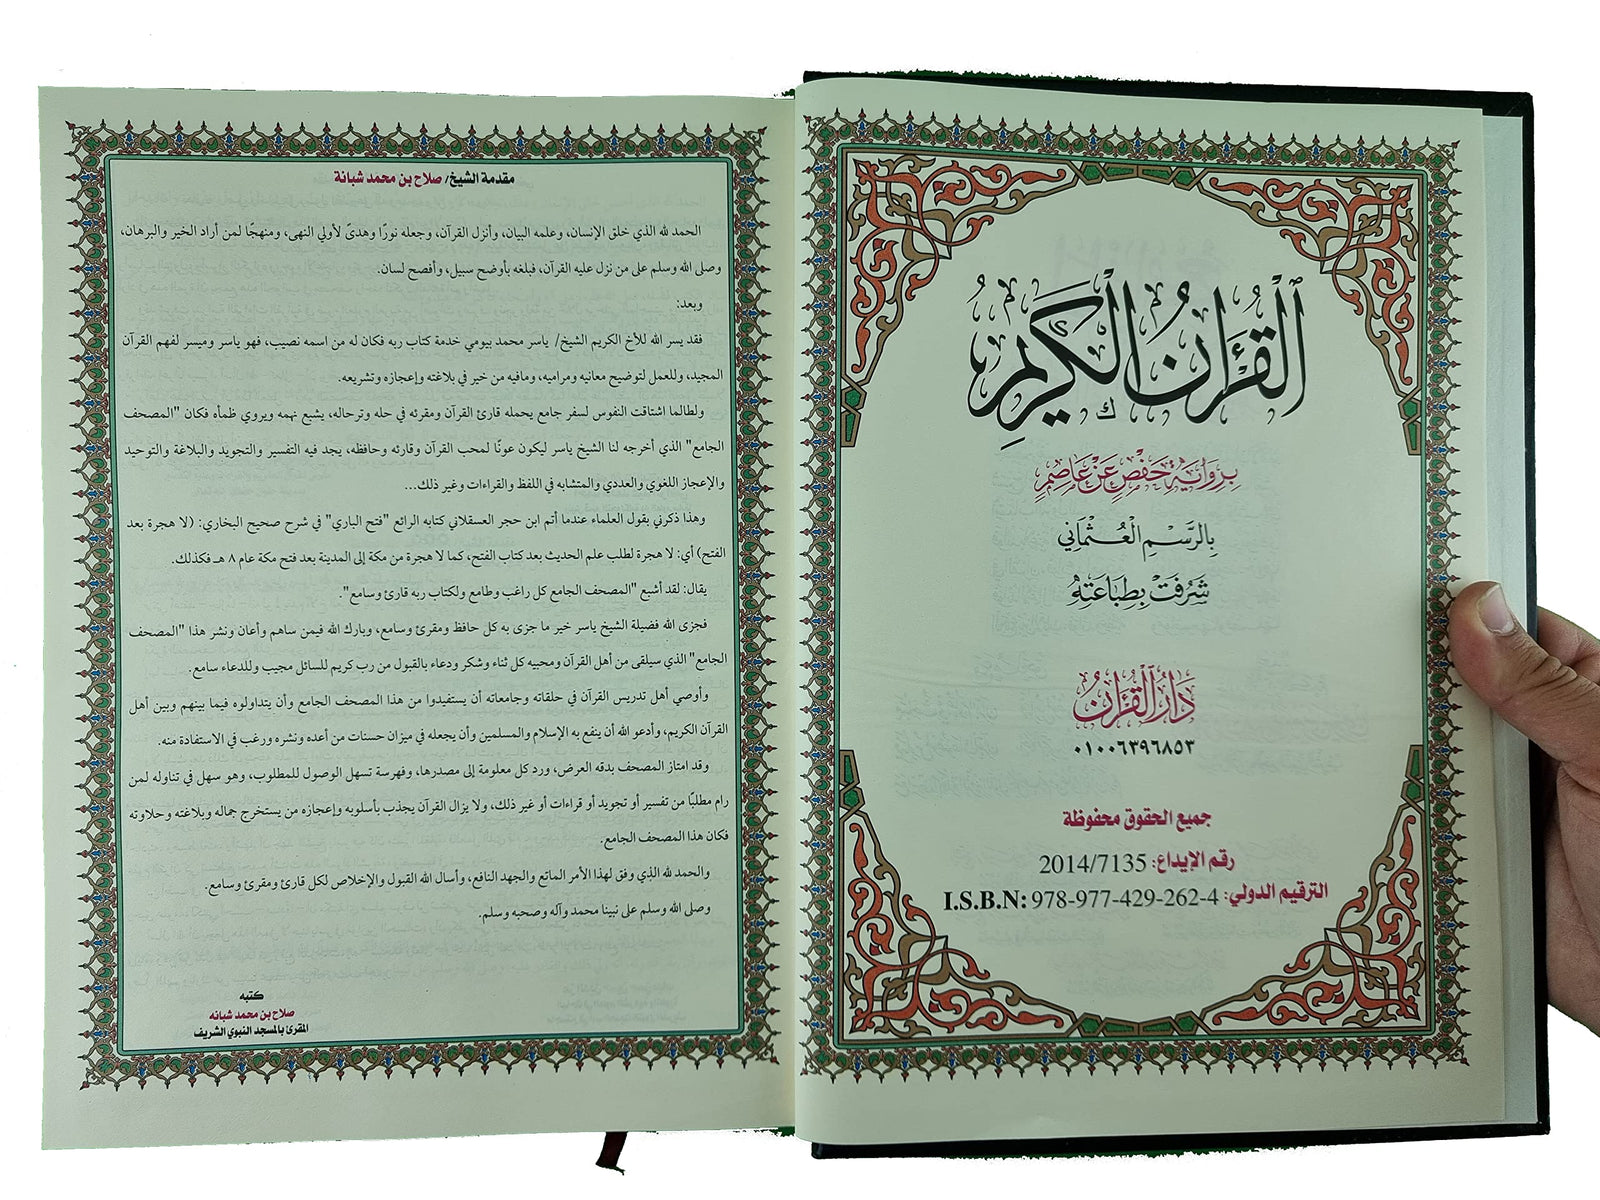 ٱلْقُرْآنُ ٱلْكَرِيمُ
بِرِوَايَةِ حَفْصٍ عَنْ عَاصِمٍ
بِالرَّسْمِ الْعُثْمَانِي
شَرُفَتْ بِطِبَاعَتِهِ
دَارُ الْقُرْآنِ
٠١٠٠٦٣٩٦٨٥٣
جميع الحقوق محفوظة
رقم الإيداع: 2014/7135
الترقيم الدولي: I.S.B.N: 978-977-429-262-4
مقدمة الشيخ/ صلاح بن محمد شبانة
الحمد لله الذي خلق الإنسان، وعلمه البيان، وأنزل القرآن، وجعله نورًا وهدىً لأولي النهى، ومنهجًا لمن أراد الخير والبرهان،
وصلى الله وسلم على من نزل عليه القرآن، فبلغه بأوضح سبيل، وأفصح لسان.
وبعد:
فقد يسر الله للأخ الكريم الشيخ/ ياسر محمد بيومي خدمة كتاب ربه فكان له من اسمه نصيب، فهو ياسر وميسر لفهم القرآن
المجيد، وللعمل لتوضيح معانيه ومراميه، ومافيه من خير في بلاغته وإعجازه وتشريعه.
ولطالما اشتاقت النفوس لسفر جامع يحمله قارئ القرآن ومقرئه في حله وترحاله، يشبع نهمه ويروي ظمأه فكان "المصحف
الجامع" الذي أخرجه لنا الشيخ ياسر ليكون عونًا لمحب القرآن وقارئه وحافظه، يجد فيه التفسير والتجويد والبلاغة والتوحيد
والإعجاز اللغوي والعددي والمتشابه في اللفظ والقراءات وغير ذلك...
وهذا ذكرني بقول العلماء عندما أتم ابن حجر العسقلاني كتابه الرائع "فتح الباري" في شرح صحيح البخاري: (لا هجرة بعد
الفتح) أي: لا هجرة لطلب علم الحديث بعد كتاب الفتح، كما لا هجرة من مكة إلى المدينة بعد فتح مكة عام ٨ هـ فكذلك.
يقال: لقد أشبع "المصحف الجامع كل راغب وطامع ولكتاب ربه قارئ وسامع".
فجزى الله فضيلة الشيخ ياسر خير ما جزى به كل حافظ ومقرئ وسامع، وبارك الله فيمن ساهم وأعان ونشر هذا "المصحف
الجامع" الذي سيلقى من أهل القرآن ومحبيه كل ثناء وشكر ودعاء بالقبول من رب كريم للسائل مجيب وللدعاء سامع.
وأوصي أهل تدريس القرآن في حلقاته وجامعاته أن يستفيدوا من هذا المصحف الجامع وأن يتداولوه فيما بينهم وبين أهل
القرآن الكريم، وأدعو الله أن ينفع به الإسلام والمسلمين وأن يجعله في ميزان حسنات من أعده ونشره ورغب في الاستفادة منه.
وقد امتاز المصحف بدقه العرض، ورد كل معلومة إلى مصدرها، وفهرسة تسهل الوصول للمطلوب، وهو سهل في تناوله لمن
رام مطلبًا من تفسير أو تجويد أو قراءات أو غير ذلك، ولا يزال القرآن يجذب بأسلوبه وإعجازه من يستخرج جماله وبلاغته وحلاوته
فكان هذا المصحف الجامع.
والحمد لله الذي وفق لهذا الأمر الماتع والجهد النافع، وأسال الله القبول والإخلاص لكل قارئ ومقرئ وسامع.
وصلى الله وسلم على نبينا محمد وآله وصحبه وسلم.
كتبه
صلاح بن محمد شبانه
المقرئ بالمسجد النبوي الشريف